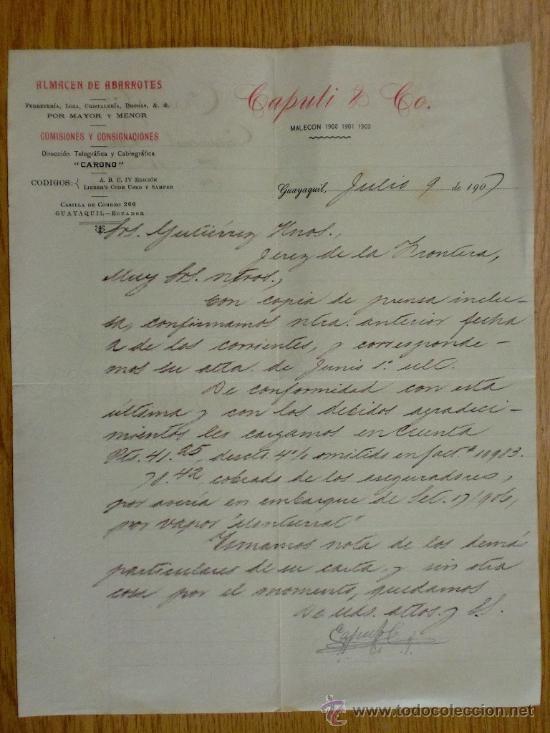 ALMACEN DE ABARROTES
FERRETERÍA, LOZA, CRISTALERÍA, DROGAS, & &.
POR MAYOR Y MENOR
COMISIONES Y CONSIGNACIONES
Dirección Telegráfica y Cablegráfica
"CARONO"
CODIGOS: { A. B. C. IV EDICIÓN
LIEBER'S CODE USED Y SAMPER
CASILLA DE CORREO 266
GUAYAQUIL—ECUADOR
Caputi & Co.
MALECON 1900 1901 1902
Guayaquil, Julio 9 de 1907
Srs. Gutiérrez Hnos.,
Jerez de la Frontera,
Muy Srs. ntros.,
Con copia de prensa inclu-
sa, confirmamos ntra. anterior fecha
de los corrientes, y corresponde-
mos su atta. de Junio 1º. ult.
De conformidad con esta
última y con los debidos agradeci-
mientos les cargamos en Cuenta
Pts. 41.25, descto. 4% omitido en fact.ª 10983.
78.42 cobrado de los aseguradores,
por avería en embarque de Set. 17/906,
por vapor
Tomamos nota de los demá
particulares de su carta y sin otra
cosa por el momento, quedamos
De uds. attos. y S.S.
Caputi & Co.
todocoleccion
www.todocoleccion.net